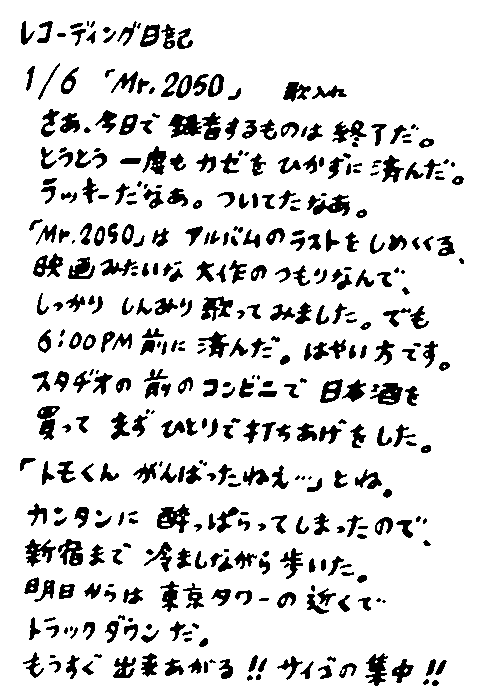 レコーディング日記
1/6 「Mr.2050」 歌入れ
さあ、今日で録音するものは終了だ。
とうとう一度もカゼをひかずに済んだ。
ラッキーだなあ。ついてたなあ。
「Mr.2050」はアルバムのラストをしめくくる、
映画みたいな大作のつもりなんで、
しっかりしんみり歌ってみました。でも
6:00PM前に済んだ。はやい方です。
スタヂオの前のコンビニで日本酒を
買ってまずひとりで打ちあげをした。
「トモくんがんばったねえ…」とね。
カンタンに酔っぱらってしまったので、
新宿まで冷ましながら歩いた。
明日からは東京タワーの近くで
トラックダウンだ。
もうすぐ出来あがる!!サイゴの集中!!